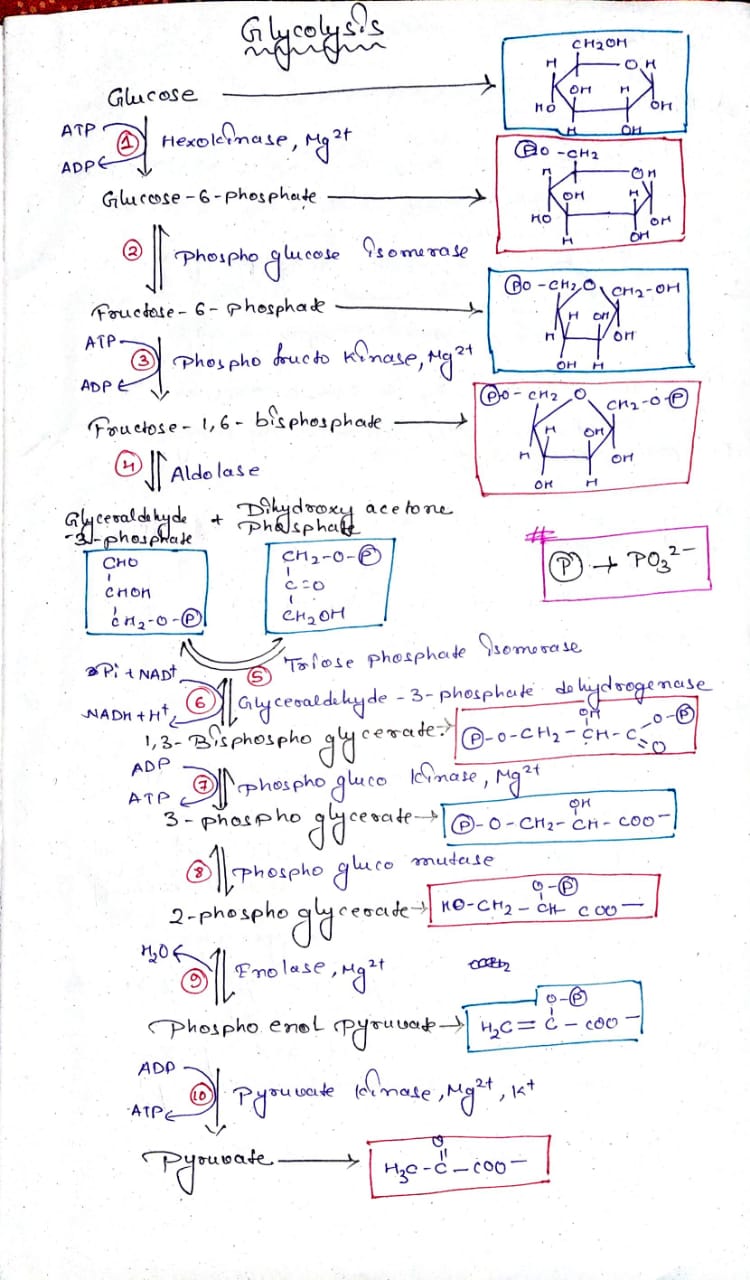 Glycolysis
Glucose
CH2OH
H
OH
OH
H
HO
OH
H
OH
ATP
① Hexokinase, Mg2+
ADP
Glucose-6-phosphate
ⓅO-CH2
H
OH
OH
H
HO
OH
H
OH
② Phospho glucose Isomerase
Fructose-6-phosphate
ⓅO-CH2
O
CH2-OH
H
OH
H
OH
OH
H
ATP
③ Phospho fructo Kinase, Mg2+
ADP
Fructose-1,6-bisphosphate
ⓅO-CH2
O
CH2-O-Ⓟ
H
OH
H
OH
OH
H
④ Aldolase
Glyceraldehyde + Dihydroxy acetone
-3-phosphate phosphate
CHO
CHOH
CH2-O-Ⓟ
CH2-O-Ⓟ
C=O
CH2OH
#
Ⓟ → PO3 2-
⑤ Triose phosphate Isomerase
Pi + NAD+
⑥ Glyceraldehyde-3-phosphate dehydrogenase
NADH + H+
1,3-Bisphospho glycerate→
OH
Ⓟ-O-CH2-CH-C
O-Ⓟ
O
ADP
⑦ phospho gluco kinase, Mg2+
ATP
3-phospho glycerate→
OH
Ⓟ-O-CH2-CH-COO-
⑧ phospho gluco mutase
2-phospho glycerate→
O-Ⓟ
HO-CH2-CH COO-
H2O
⑨ Enolase, Mg2+
Phospho enol pyruvate→
O-Ⓟ
H2C=C-COO-
ADP
⑩ Pyruvate kinase, Mg2+, K+
ATP
Pyruvate
O
H3C-C-COO-